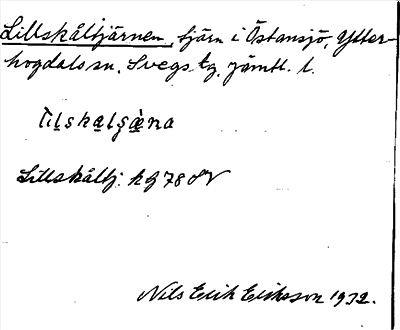 Lillskåltjärnen, tjärn i Östansjö, Ytter-
hogdals sn, Svegs tg, Jämtl. l.
Lillskåltj. kg 78 SV
Nils Erik Eriksson 1932.